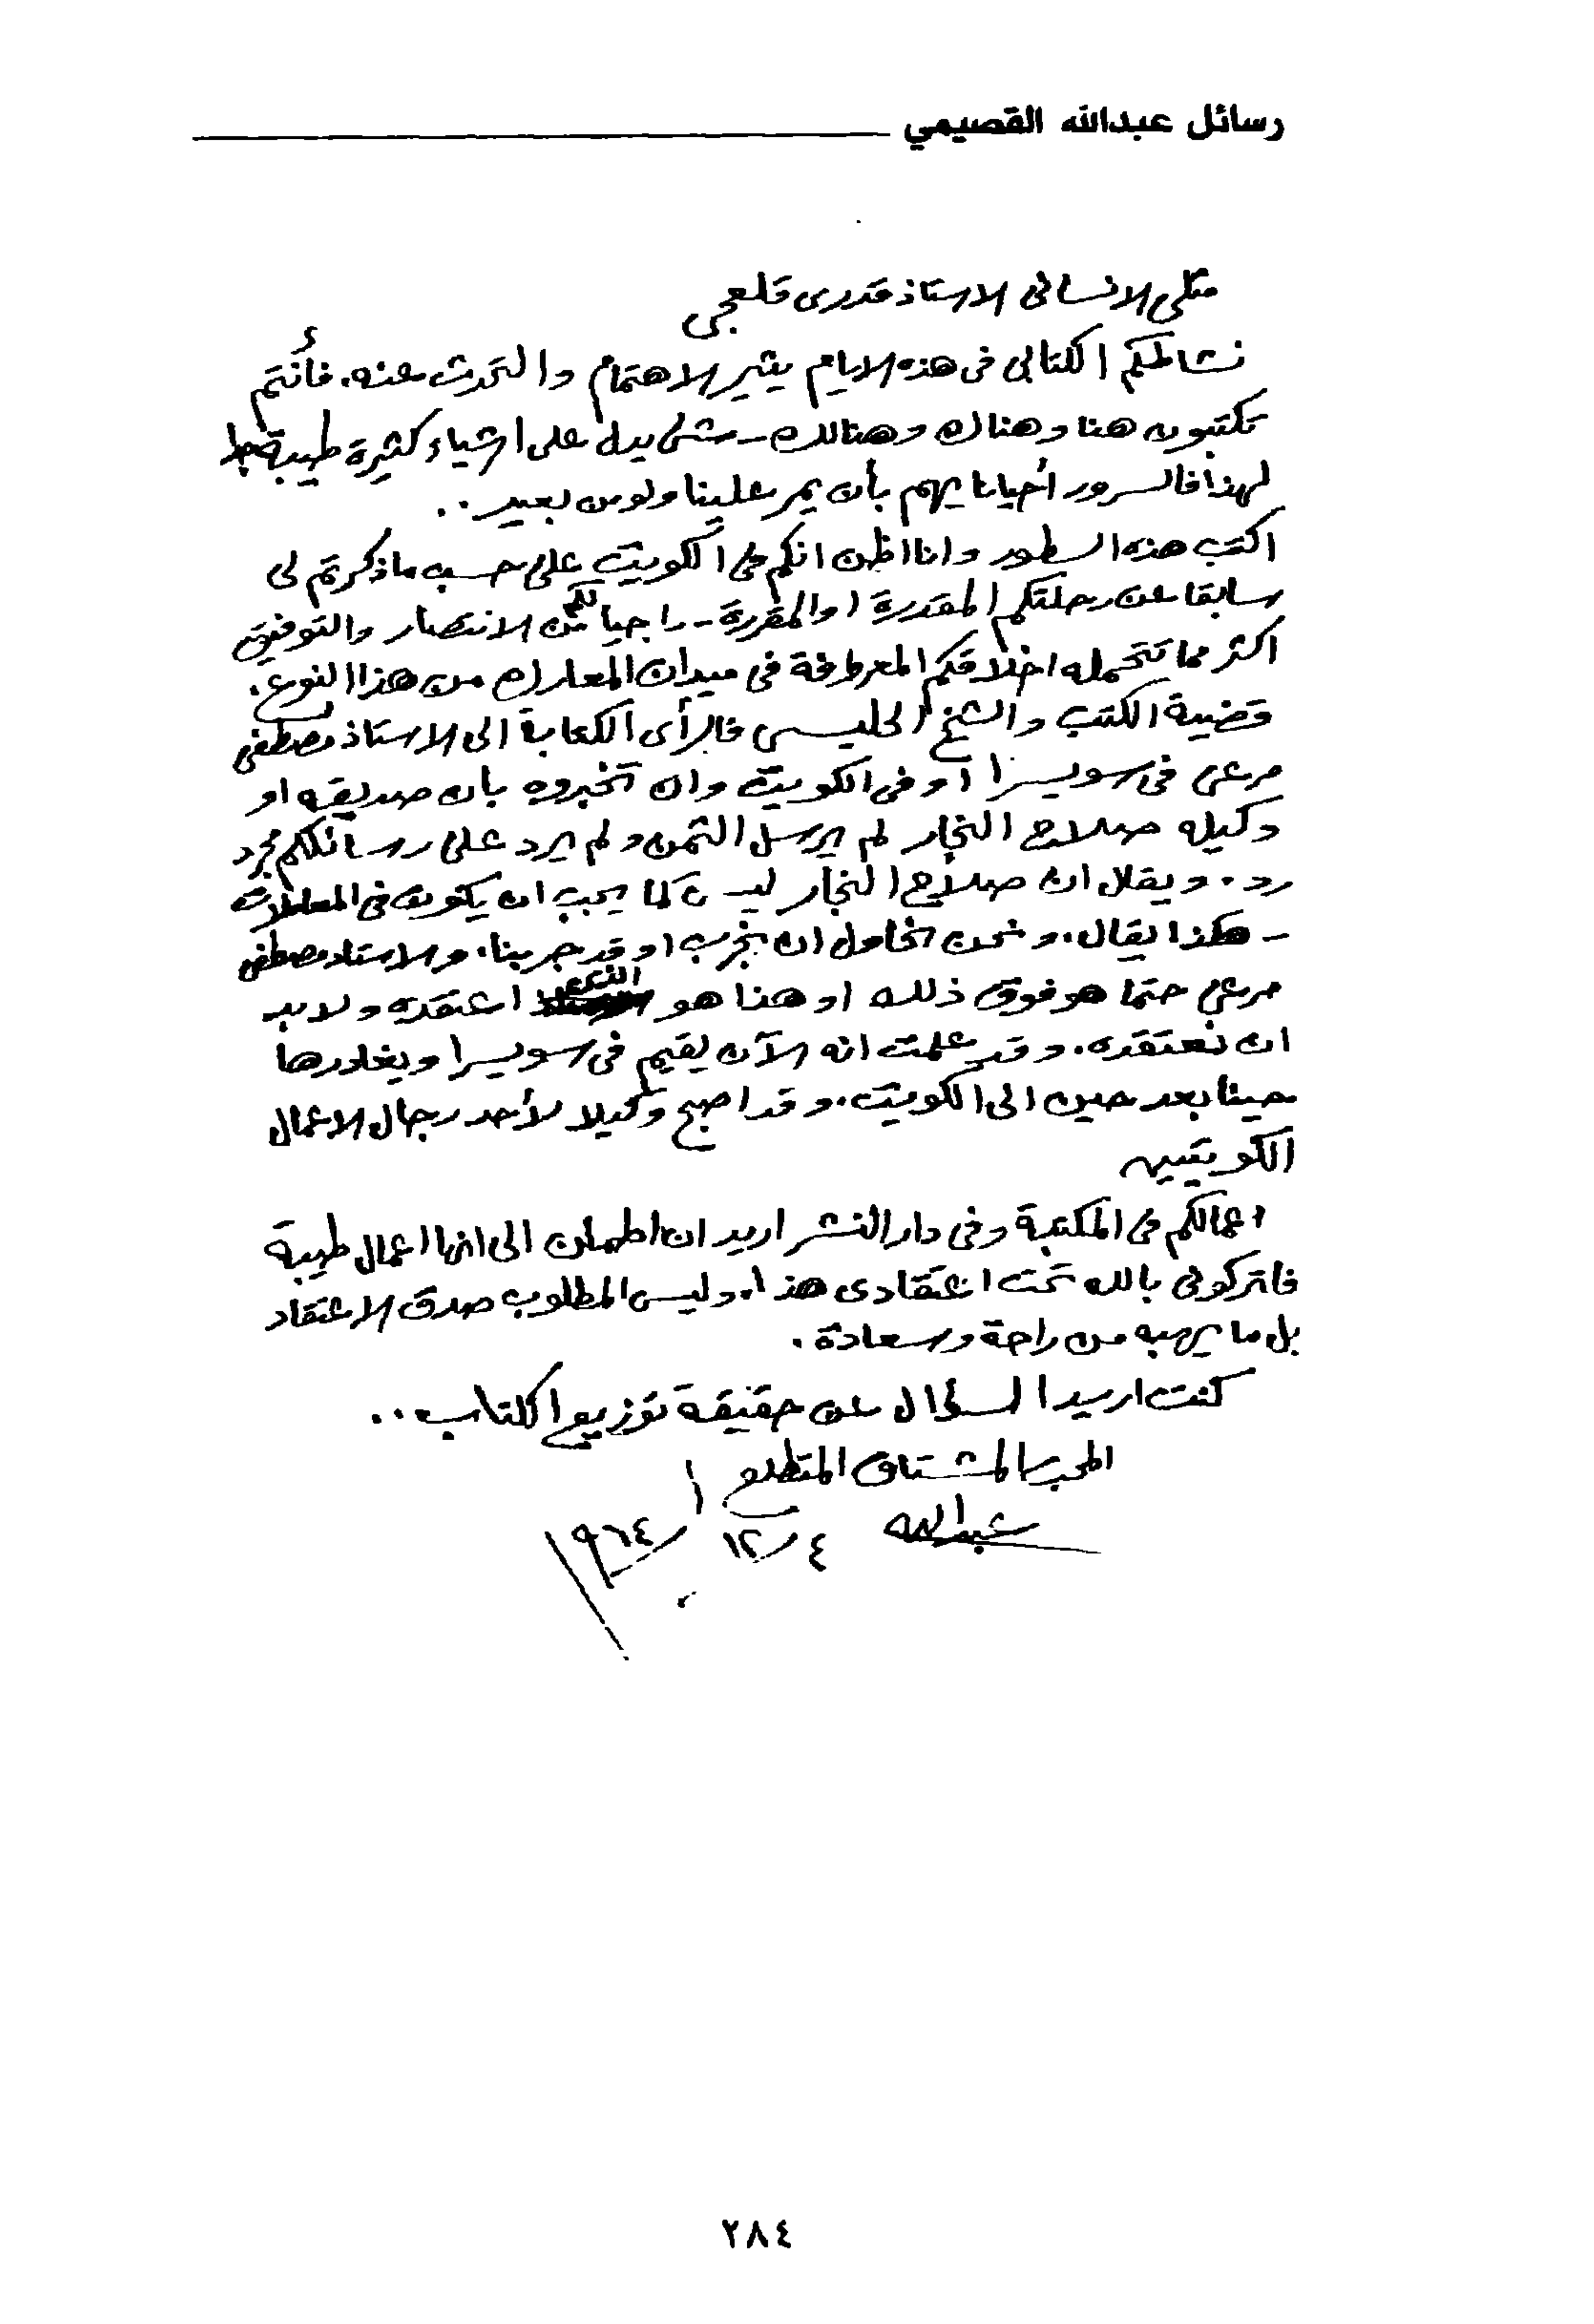 رسائل عبدالله القصيمي
مثلى الانسانى الاستاذ قدرى قلعجى
نشاطكم الكتابى فى هذه الايام يثير الاهتمام والتحدث عنه. فأنتم
تكتبون هنا وهناك وهنالك - شئ يدل على اشياء كثيرة طيبة جدا
لهذا فالسرور أحيانا يهم بأن يمر علينا ولو من بعيد..
اكتب هذه السطور وانا اظن انكم فى الكويت على حسب ما ذكرتم لى
سابقا عن رحلتكم المقدرة او المقررة - راجيا لكم من الانتصار والتوفيق
اكثر مما تتحمله اخلاقكم المعروفة فى ميدان المعارك من هذا النوع.
قضية الكتب والشيخ الحليسى فالرأى الكتابة الى الاستاذ مصطفى
مرعى فى سويسرا أو فى الكويت وان تخبروه بان صديقه او
وكيله صلاح النجار لم يرسل الثمن ولم يرد على رسائلكم مجرد
رد. ويقال ان صلاح النجار ليس كما يجب ان يكون فى المعاملات
- هكذا يقال. ونحن نحاول ان نجرب او قد جربنا. والاستاذ مصطفى
مرعى حتما هو فوق ذلك او هذا هو الذى اعتقده ولابد
ان نعتقده. وقد علمت انه الآن يقيم فى سويسرا ويغادرها
حينا بعد حين الى الكويت. وقد اصبح وكيلا لأحد رجال الاعمال
الكويتيين
اعمالكم فى المكتبة وفى دار النشر اريد ان اطمئن الى انها اعمال طيبة
فاتركونى بالله تحت اعتقادى هذا. وليس المطلوب صدق الاعتقاد
بل ما يهبه من راحة وسعادة.
كنت اريد السؤال عن حقيقة توزيع الكتاب..
المحب المشتاق المتطلع
عبدالله ٤/١٢/١٩٦٤
٢٨٤